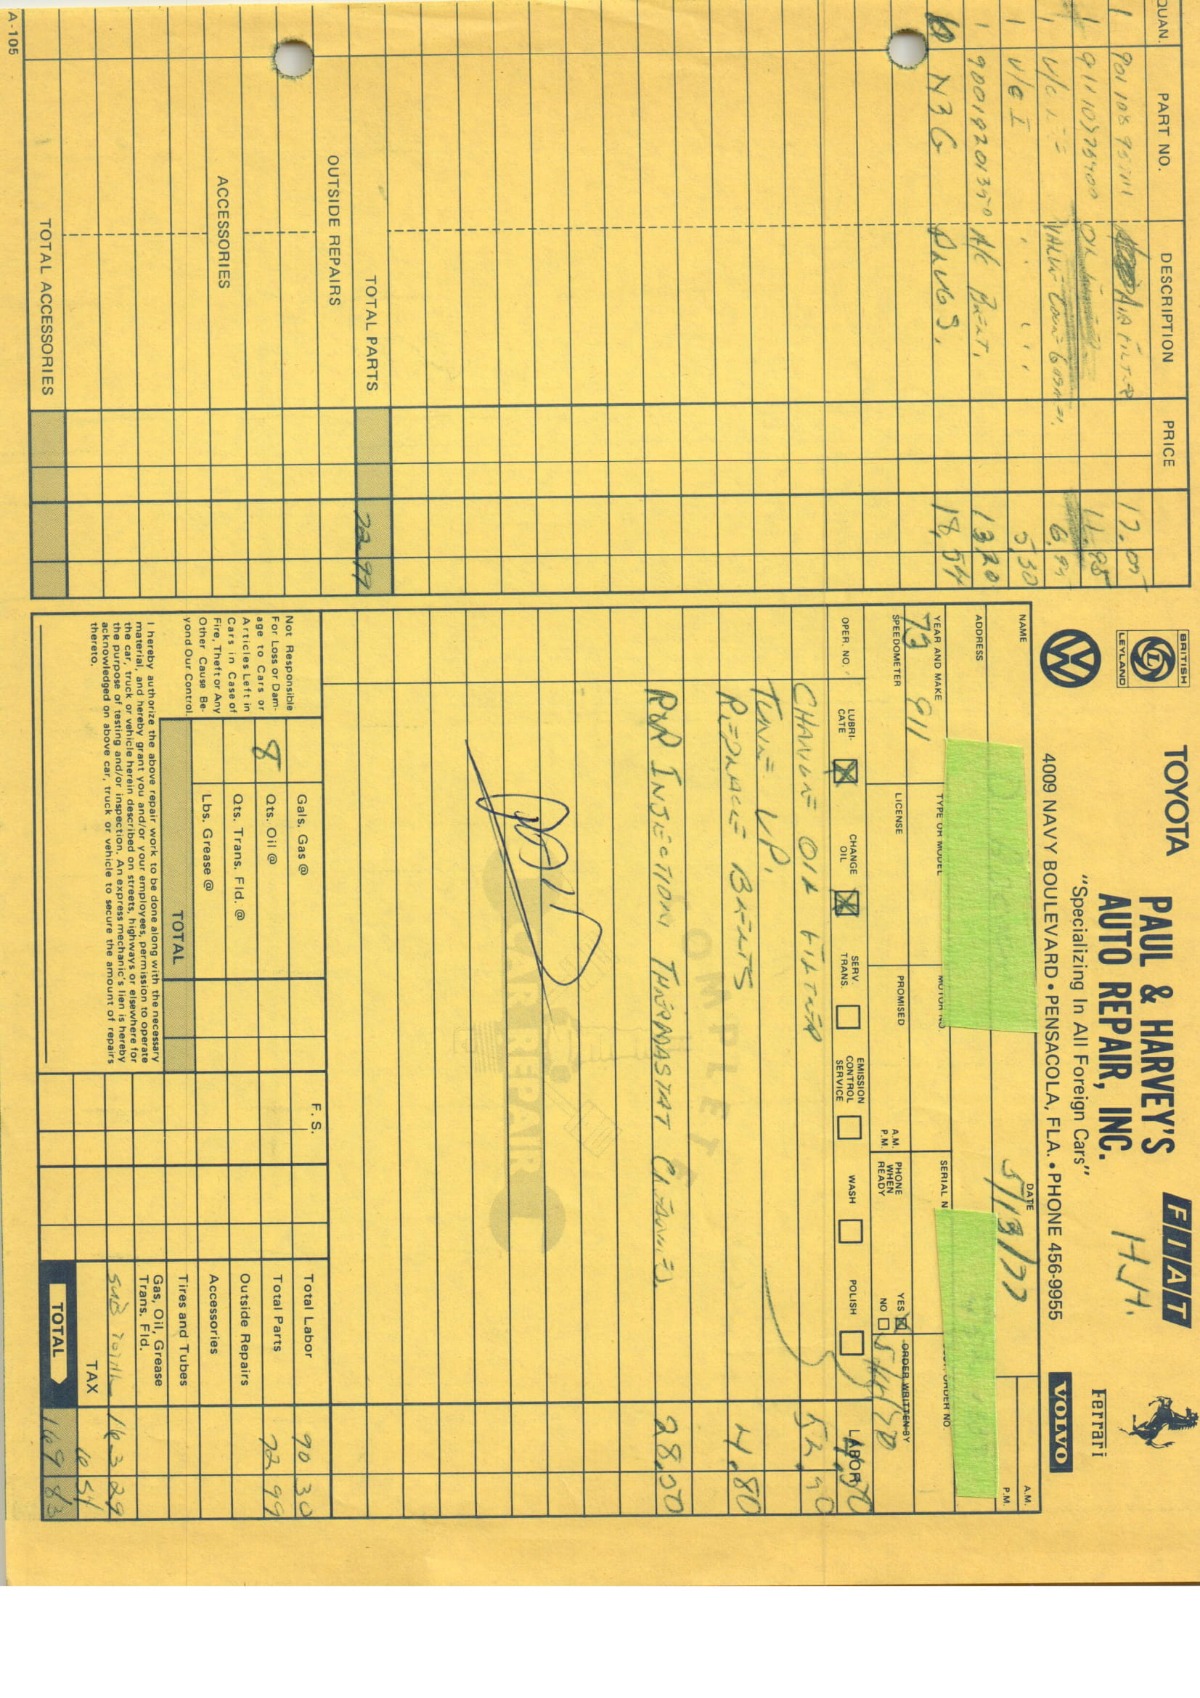 QUAN. PART NO. DESCRIPTION PRICE
1 901 108 AIR FILTER 17.00
1 911107 OIL 11.95
1 V/C VALVE COVER 6.
1 V/C I " " " 5.30
1 A/C BELT. 13.20
N3G PLUGS. 18.54
TOTAL PARTS 72.99
OUTSIDE REPAIRS
ACCESSORIES
TOTAL ACCESSORIES
A-105
BRITISH LEYLAND
TOYOTA
PAUL & HARVEY'S
AUTO REPAIR, INC.
FIAT
H.H.
"Specializing In All Foreign Cars"
Ferrari
4009 NAVY BOULEVARD • PENSACOLA, FLA. • PHONE 456-9955
VW
VOLVO
NAME
DATE
5/13/77
A.M.
P.M.
ADDRESS
YEAR AND MAKE TYPE OR MODEL MOTOR NO SERIAL N CUST. ORDER NO.
73 911
SPEEDOMETER LICENSE PROMISED A.M. P.M. PHONE WHEN READY YES NO ORDER WRITTEN BY
OPER. NO. LUBRI-CATE CHANGE OIL SERV. TRANS. EMISSION CONTROL SERVICE WASH POLISH LABOR
CHANGE OIL & FILTER 4.50
TUNE UP. 52.90
REPLACE BELTS 4.80
R&R INJECTION THERMASTAT CLEANED 28.50
COMPLETE
CAR REPAIR
Not Responsible
For Loss or Dam-
age to Cars or
Articles Left in
Cars in Case of
Fire, Theft or Any
Other Cause Be-
yond Our Control.
Gals. Gas @
8 Qts. Oil @
Qts. Trans. Fld. @
Lbs. Grease @
TOTAL
F.S.
Total Labor 90 30
Total Parts 72 99
Outside Repairs
Accessories
Tires and Tubes
Gas, Oil, Grease
Trans. Fld.
SUB TOTAL 163 29
TAX 6 54
TOTAL 169 83
I hereby authorize the above repair work to be done along with the necessary
material, and hereby grant you and/or your employees, permission to operate
the car, truck or vehicle herein described on streets, highways or elsewhere for
the purpose of testing and/or inspection. An express mechanic's lien is hereby
acknowledged on above car, truck or vehicle to secure the amount of repairs
thereto.